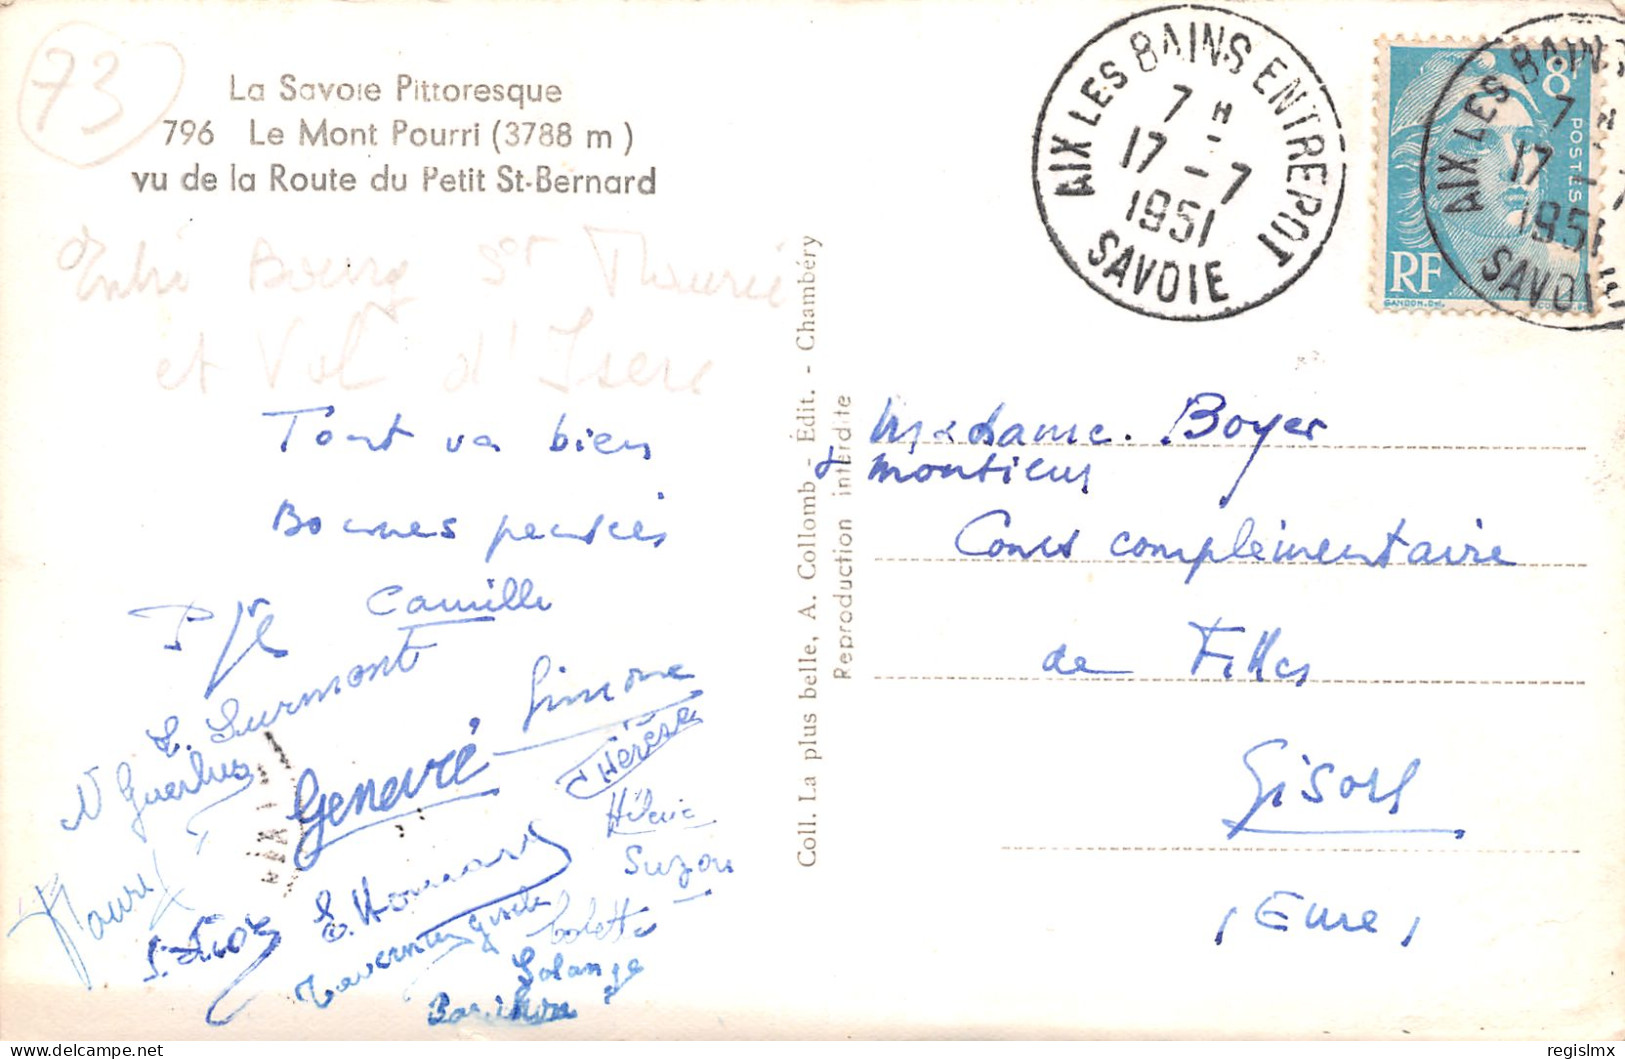 73
La Savoie Pittoresque
796 Le Mont Pourri (3788 m)
vu de la Route du Petit St-Bernard
Entre Bourg St Maurice
et Val d'Isere
Tout va bien
Bonnes pensées
Camille
L. Surmont
Simone
Thérèse
Genevré
Hélène
Suzon
Colette
Solange
Tavernier Gisèle
AIX LES BAINS ENTREPOT
7 H
17 - 7
1951
SAVOIE
8F
POSTES
RF
GANDON.DEL.
AIX LES BAINS
7 H
17 - 7
1951
SAVOIE
Coll. La plus belle, A. Collomb - Édit. - Chambéry
Reproduction interdite
Madame. Boyer
& monsieur
Cours complémentaire
de Filles
Gisors
(Eure)
regislmx